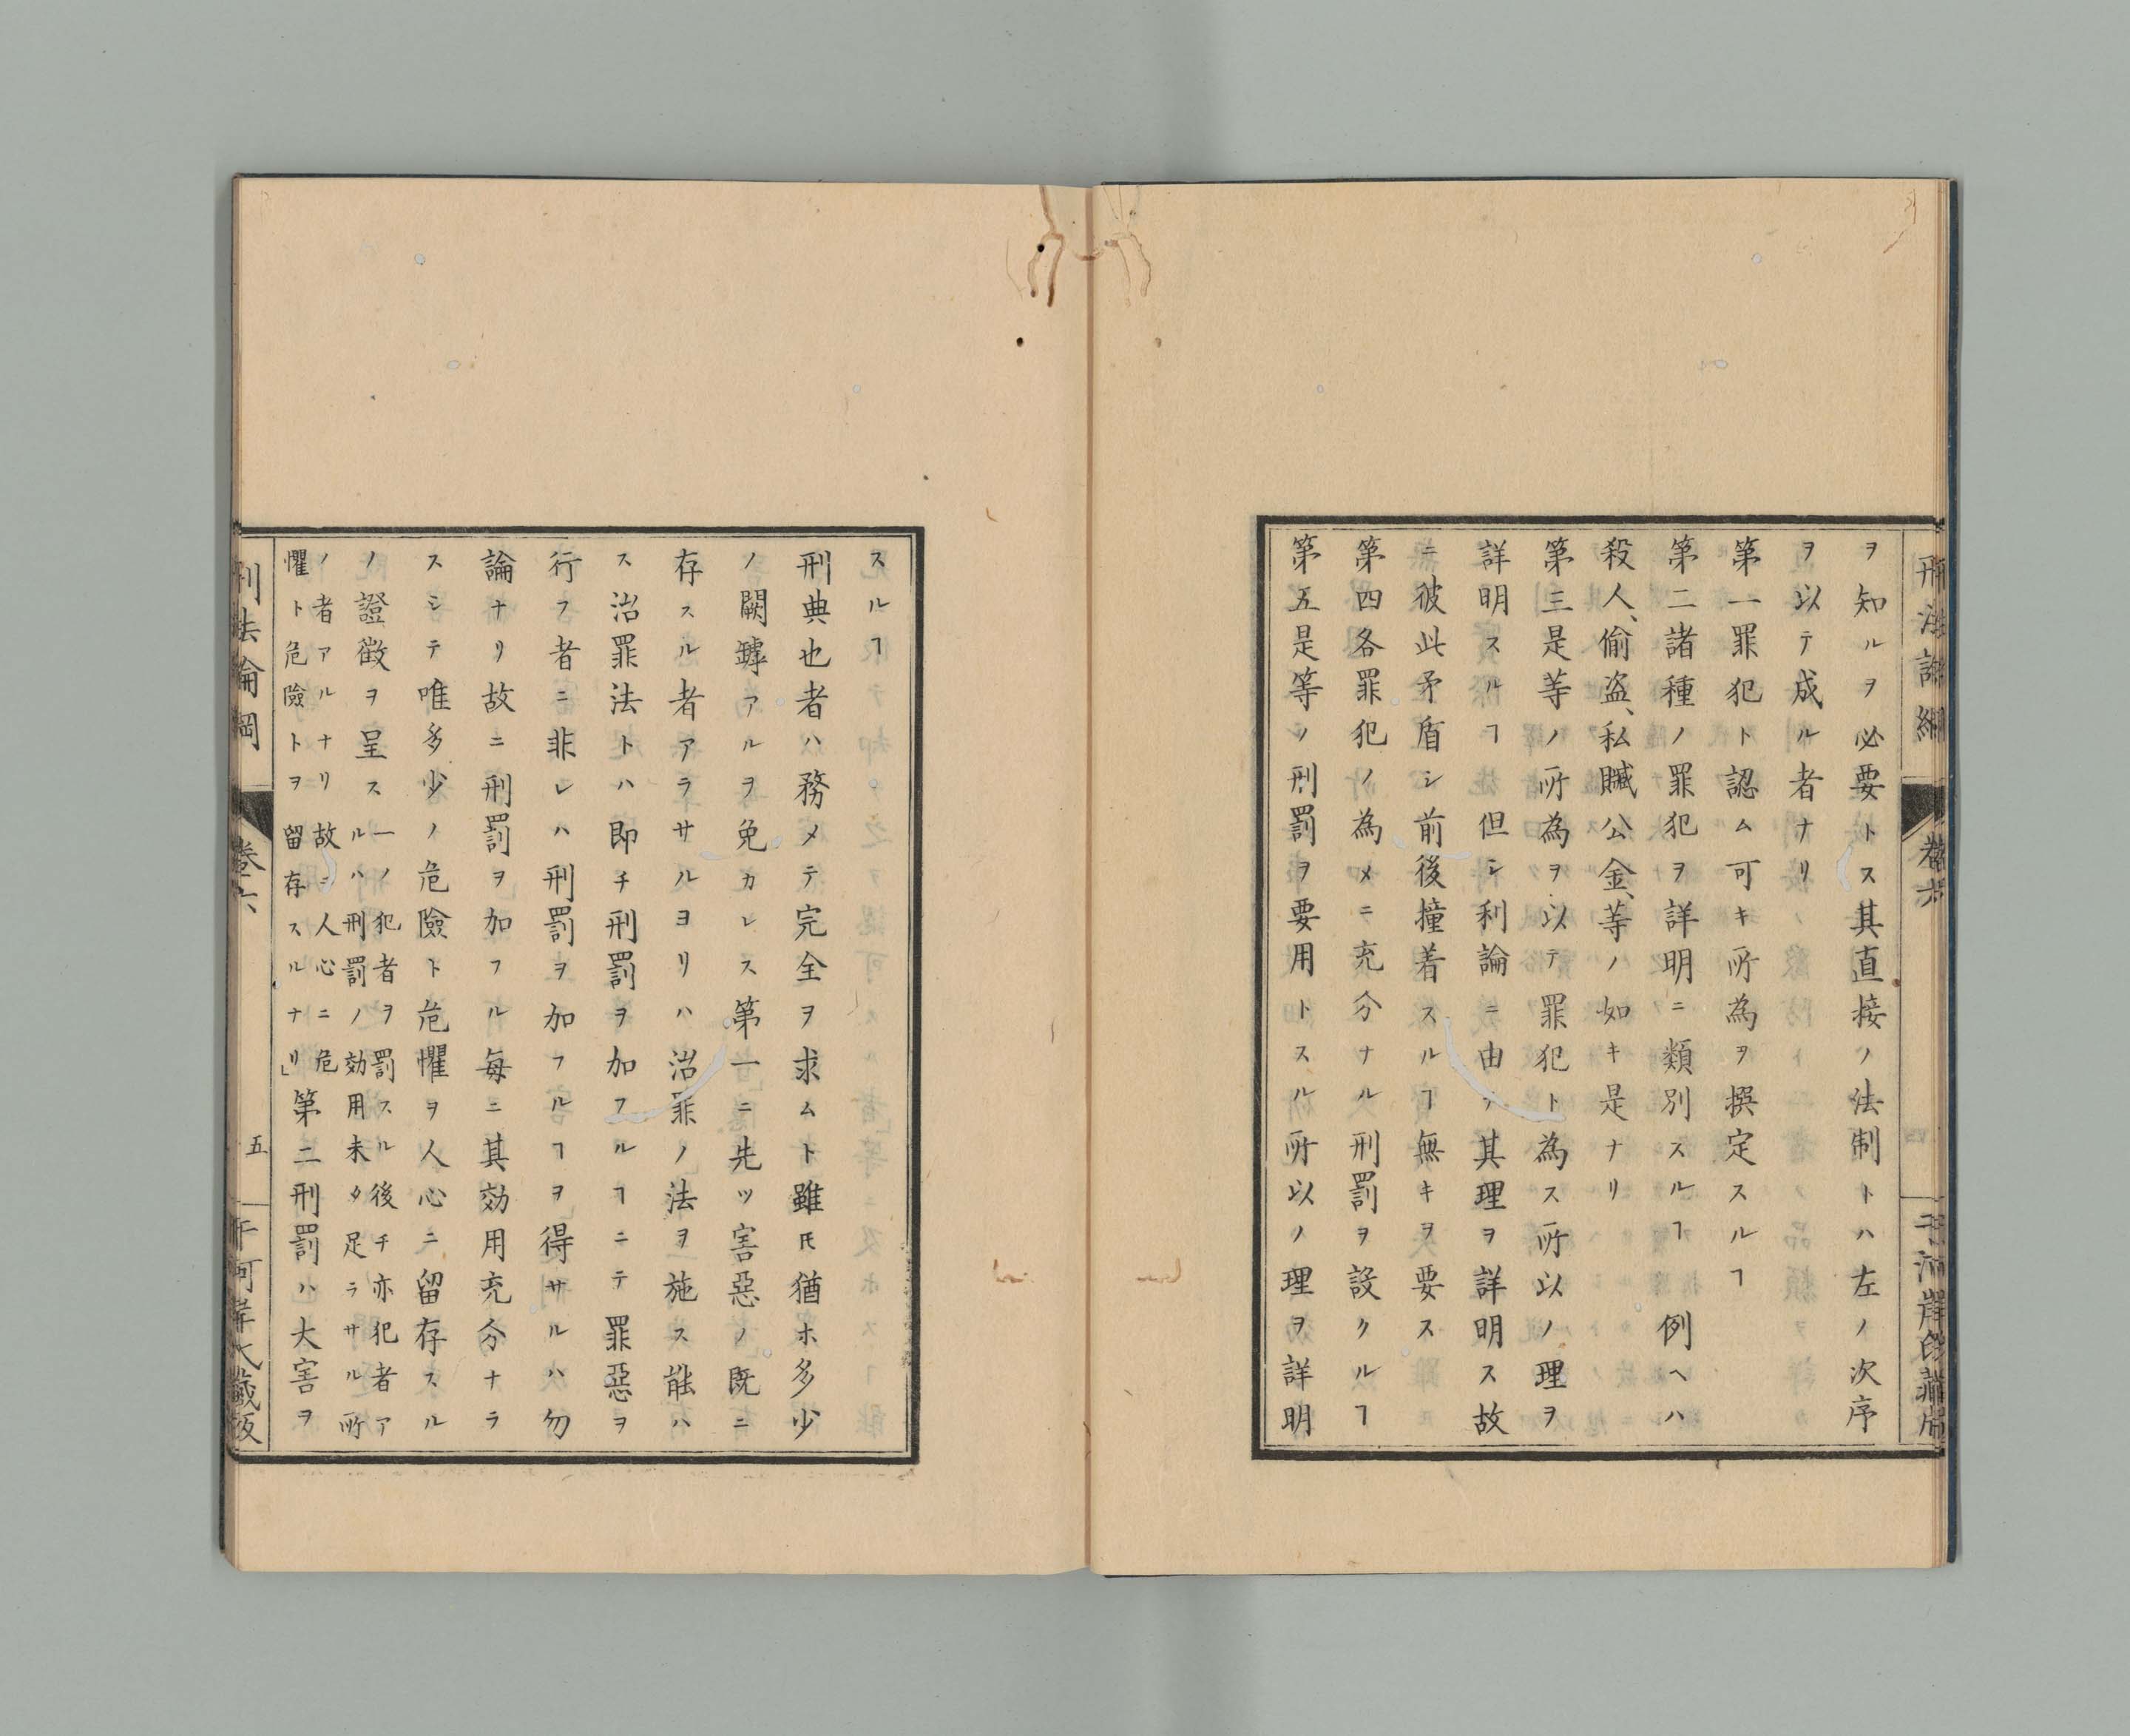 ヲ知ルヲ必要トス其直接ノ法制トハ左ノ次序
ヲ以テ成ル者ナリ
第一罪犯ト認ム可キ所為ヲ撰定スルヿ
第二諸種ノ罪犯ヲ詳明ニ類別スルヿ 例ヘハ
殺人、偷盗、私贓公金、等ノ如キ是ナリ
第三是等ノ所為ヲ以テ罪犯ト為ス所以ノ理ヲ
詳明スルヿ但シ利論ニ由テ其理ヲ詳明ス故
ニ彼此矛盾シ前後撞着スルヿ無キヲ要ス
第四各罪犯ノ為メニ充分ナル刑罰ヲ設クルヿ
第五是等ノ刑罰ヲ要用トスル所以ノ理ヲ詳明
スルヿ
刑典也者ハ務メテ完全ヲ求ムト雖𪜈猶ホ多少
ノ闕罅アルヲ免カレス第一ニ先ツ害惡ノ既ニ
存スル者アラサルヨリハ治罪ノ法ヲ施ス能ハ
ス治罪法トハ即チ刑罰ヲ加フルヿニテ罪惡ヲ
行フ者ニ非レハ刑罰ヲ加フルヿヲ得サルハ勿
論ナリ故ニ刑罰ヲ加フル毎ニ其効用充分ナラ
スシテ唯多少ノ危險ト危懼ヲ人心ニ留存スル
ノ證徵ヲ呈ス
一ノ犯者ヲ罰スル後チ亦犯者ア
ルハ刑罰ノ効用未タ足ラサル所
ノ者アルナリ故ニ人心ニ危
懼ト危險トヲ留存スルナリ」
第二刑罰ハ大害ヲ
刑法論綱
卷六
五